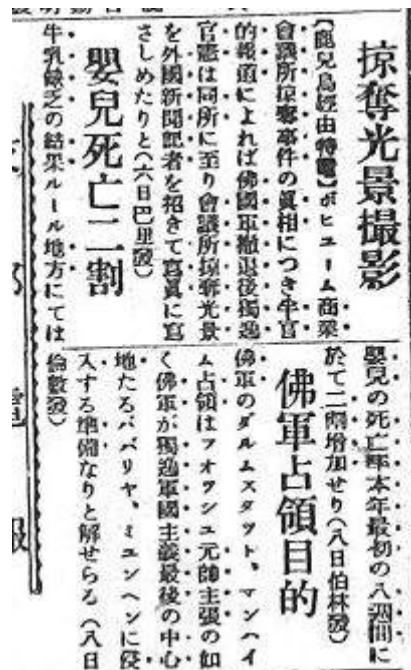 掠奪光景撮影
【鹿兒島經由特電】ボヒューム商業
會議所掠奪事件の眞相につき半官
的報道によれば佛國軍撤退後獨逸
官憲は同所に至り會議所掠奪光景
を外國新聞記者を招きて寫眞に寫
さしめたりと(六日巴里發)
嬰兒死亡二割
牛乳缺乏の結果ルール地方にては
嬰兒の死亡率本年最初の八週間に
於て二割増加せり(八日伯林發)
佛軍占領目的
佛軍のダルムスタット、マンハイ
ム占領はフオツシユ元帥主張の如
く佛軍が獨逸軍國主義最後の中心
地たるババリヤ、ミユンヘンに侵
入する準備なりと解せらる(八日
倫敦發)